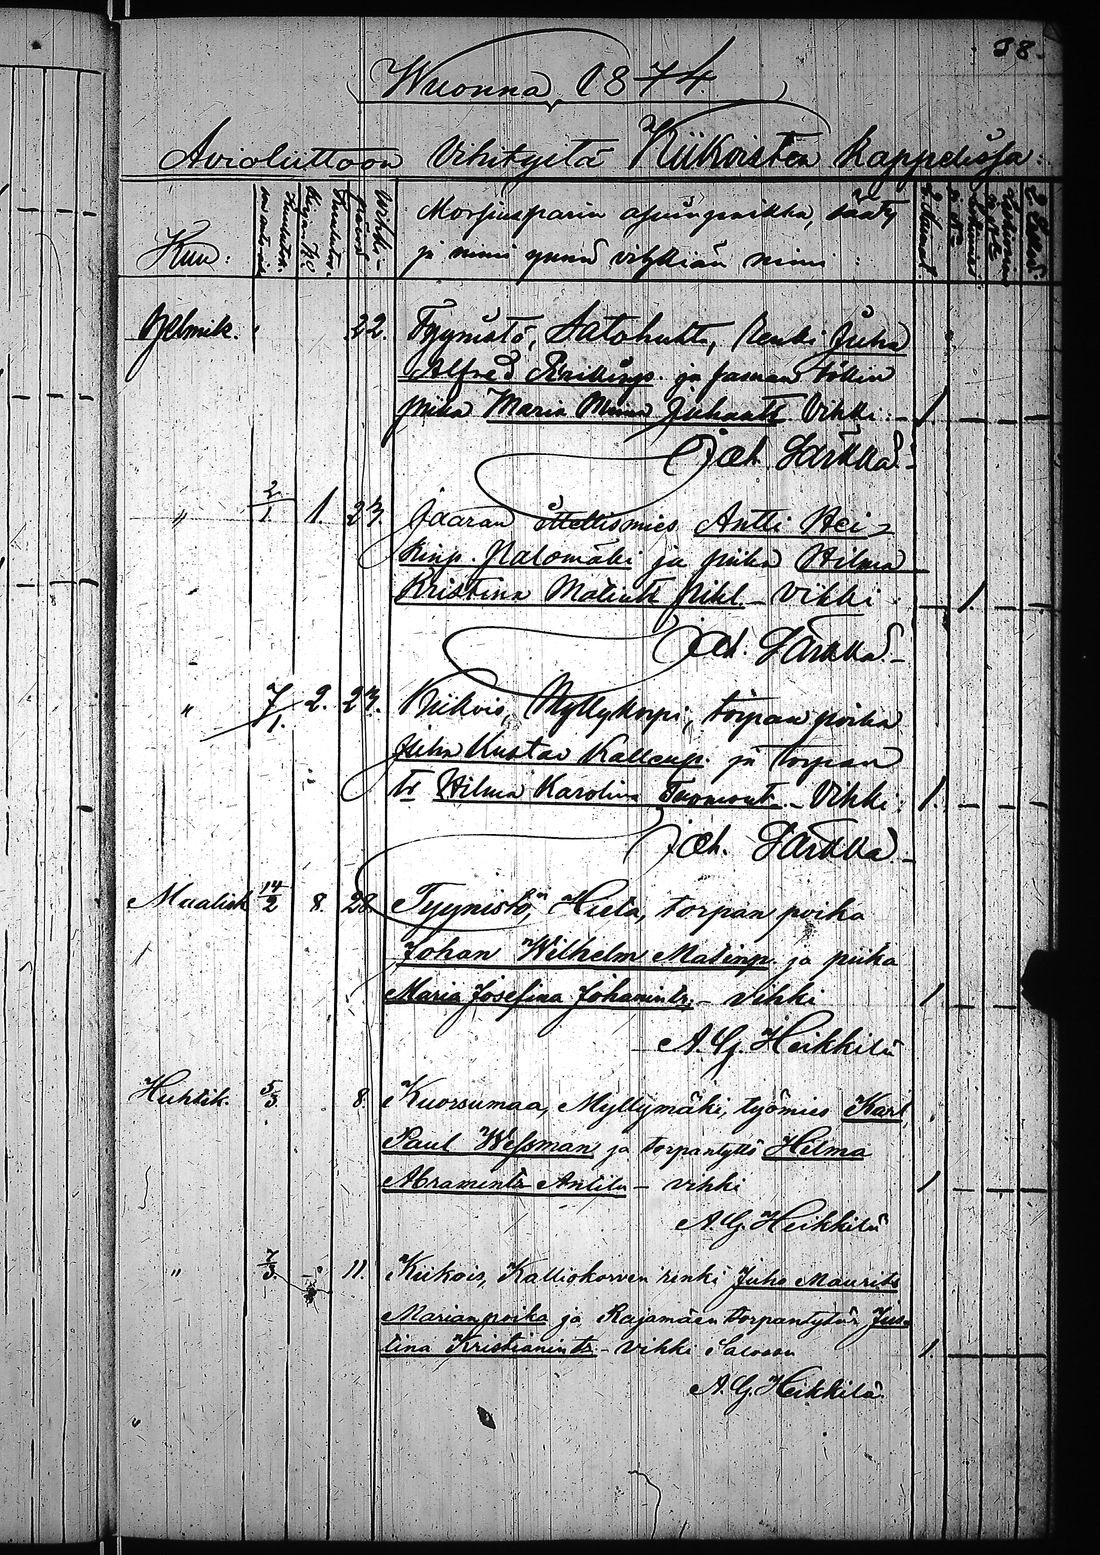 38.
Wuonna 1874.
Avioliittoon Vihityistä Kiikoisten kappelissa:
Kuu:
Morsiusparin asuinpaikka, sääty
ja nimi ynnä vihkiän nimi:
Helmik. 22. Tyynistö, Satohuhta, Renki Juha
Alfred ja saman talon
piika Maria Juhantr Vihki: 1.
Joh. Särkkä.
" 2/1. 1. 23. Jaaran Antti Hei-
kinp. Palomäki ja piika Hilma
Kristina Matintr Vihki. 1.
Joh. Särkkä.
" 7/1. 2. 23. Kiikois, Myllykorpi, torpan poika
Juha Kustav Kallenp. ja torpan
tr Hilma Karolina Tuomont. Vihki; 1.
Joh. Särkkä
Maalisk 14/2 8. 28. Tyynistö, Hieta, torpan poika
Johan Wilhelm Matinp. ja piika
Maria Josefina Johanintr. – vihki 1
A. G. Heikkilä
Huhtik. 5/3. 8. Kuorsumaa, Myllymäki, työmies Karl
Paul Wessman ja torpantyttö Hilma
Abramintr Antila – vihki 1
A. G. Heikkilä
" 7/3. 11. Kiikois, Kalliokorven renki Juho Maurits
Marianpoika ja Rajamäen torpantytär Jus-
tina Kristianintr. – vihki 1.
A. G. Heikkilä